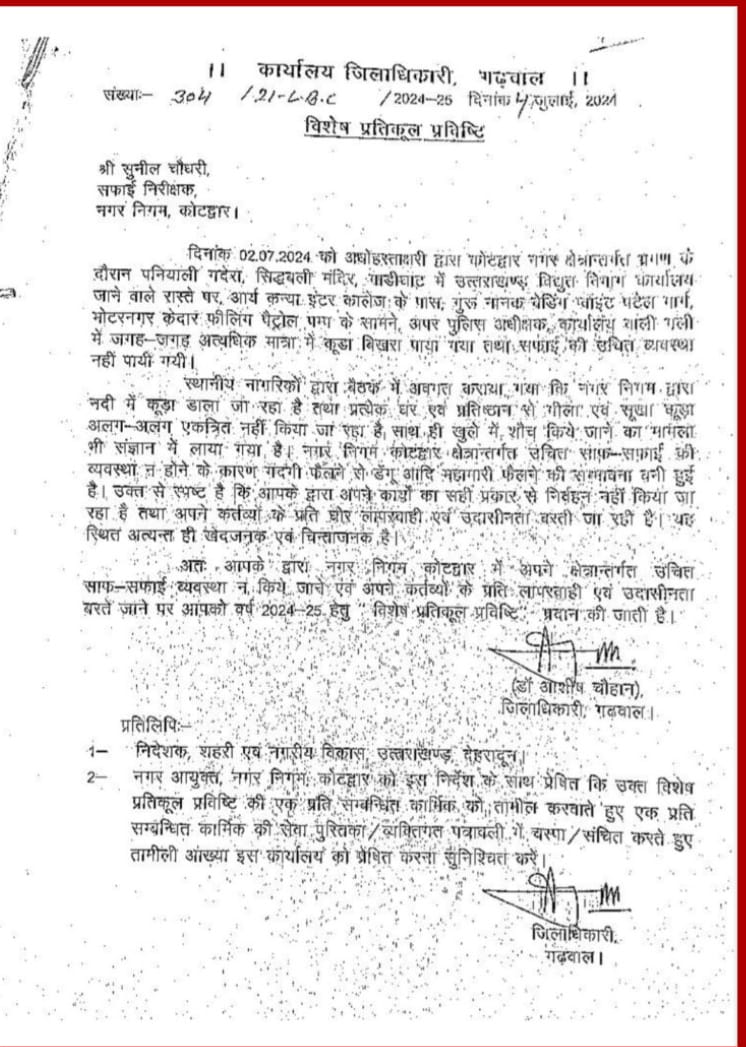 ।। कार्यालय जिलाधिकारी, गढ़वाल ।।
संख्याः– 304 /21-L.B.C /2024–25 दिनांक 4 जुलाई, 2024
विशेष प्रतिकूल प्रविष्टि
श्री सुनील चौधरी,
सफाई निरीक्षक,
नगर निगम, कोटद्वार।
दिनांक 02.07.2024 को अधोहस्ताक्षरी द्वारा कोटद्वार नगर क्षेत्रान्तर्गत भ्रमण के
दौरान पनियाली गदेरा, सिद्धबली मंदिर, गाडीघाट में उत्तराखण्ड विद्युत निगम कार्यालय
जाने वाले रास्ते पर, आर्य कन्या इंटर कालेज के पास, गुरू नानक वेडिंग प्वाइंट पटेल मार्ग,
मोटरनगर केदार फीलिंग पैट्रोल पम्प के सामने, अपर पुलिस अधीक्षक, कार्यालय वाली गली
में जगह–जगह अत्यधिक मात्रा में कूडा बिखरा पाया गया तथा सफाई की उचित व्यवस्था
नहीं पायी गयी।
स्थानीय नागरिकों द्वारा बैठक में अवगत कराया गया कि नगर निगम द्वारा
नदी में कूड़ा डाला जा रहा है तथा प्रत्येक घर एवं प्रतिष्ठान से गीला एवं सूखा कूड़ा
अलग–अलग एकत्रित नहीं किया जा रहा है, साथ ही खुले में शौच किये जाने का मामला
भी संज्ञान में लाया गया है। नगर निगम कोटद्वार क्षेत्रान्तर्गत उचित साफ–सफाई की
व्यवस्था न होने के कारण गंदगी फैलने से डेंगू आदि महामारी फैलने की सम्भावना बनी हुई
है। उक्त से स्पष्ट है कि आपके द्वारा अपने कार्यों का सही प्रकार से निर्वहन नहीं किया जा
रहा है तथा अपने कर्तव्यों के प्रति घोर लापरवाही एवं उदासीनता बरती जा रही है। यह
स्थित अत्यन्त ही खेदजनक एवं चिन्ताजनक है।
अतः आपके द्वारा नगर निगम कोटद्वार में अपने क्षेत्रान्तर्गत उचित
साफ–सफाई व्यवस्था न किये जाने एवं अपने कर्तव्यों के प्रति लापरवाही एवं उदासीनता
बरते जाने पर आपको वर्ष 2024–25 हेतु " विशेष प्रतिकूल प्रविष्टि" प्रदान की जाती है।
(डॉ आशीष चौहान),
जिलाधिकारी, गढ़वाल।
प्रतिलिपिः–
1– निदेशक, शहरी एवं नगरीय विकास उत्तराखण्ड देहरादून।
2– नगर आयुक्त, नगर निगम, कोटद्वार को इस निर्देश के साथ प्रेषित कि उक्त विशेष
प्रतिकूल प्रविष्टि की एक प्रति सम्बन्धित कार्मिक को तामील करवाते हुए एक प्रति
सम्बन्धित कार्मिक की सेवा पुस्तिका/व्यक्तिगत पत्रावली में चस्पा/संचित करते हुए
तामीली आख्या इस कार्यालय को प्रेषित करना सुनिश्चित करें।
जिलाधिकारी,
गढ़वाल।